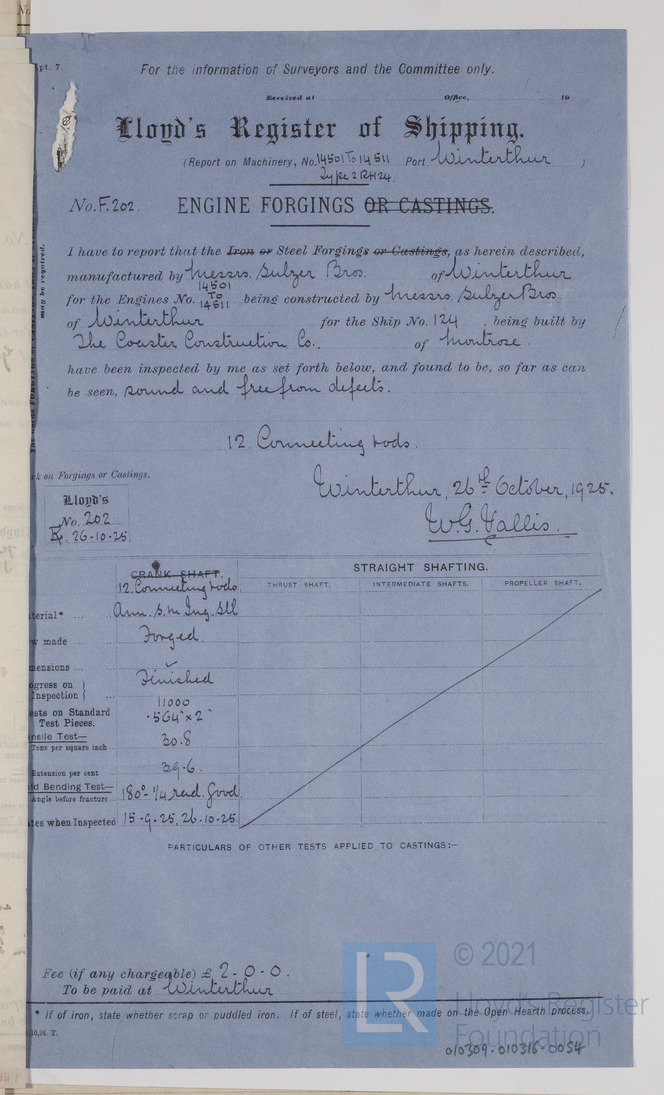 pt. 7.
For the information of Surveyors and the Committee only.
Received at Office, 19
Lloyd's Register of Shipping.
(Report on Machinery, No. 14501 To 14511 Port Winterthur )
Type 2RH24.
No. F.202. ENGINE FORGINGS OR CASTINGS.
I have to report that the Iron or Steel Forgings or Castings, as herein described,
manufactured by Messrs. Sulzer Bros. of Winterthur
for the Engines No. 14501 To 14511 being constructed by Messrs. Sulzer Bros
of Winterthur for the Ship No. 124 , being built by
The Coaster Construction Co. of Montrose.
have been inspected by me as set forth below, and found to be, so far as can
be seen, sound and free from defects.
12. Connecting rods.
may be required.
k on Forgings or Castings.
Winterthur, 26th October, 1925.
Lloyd's
No. 202
26-10-25.
W.G. Vallis.
CRANK SHAFT.
STRAIGHT SHAFTING.
12. Connecting rods.
THRUST SHAFT. INTERMEDIATE SHAFTS. PROPELLER SHAFT.
terial* ... Ann. S.M Ing. Stl
w made ... Forged.
mensions ...
ogress on } Finished
Inspection } ...
ests on Standard 11000
Test Pieces. .564" x 2"
nsile Test— 30.8
Tons per square inch
Extension per cent 39.6.
ld Bending Test— 180° 1/4 rad. Good.
Angle before fracture
tes when Inspected 15-9-25, 26-10-25.
PARTICULARS OF OTHER TESTS APPLIED TO CASTINGS:—
Fee (if any chargeable) £ 2-0-0.
To be paid at Winterthur
* If of iron, state whether scrap or puddled iron. If of steel, state whether made on the Open Hearth process.
10,24. T.
LR
© 2021
Lloyd's Register
Foundation
010309-010316-0054